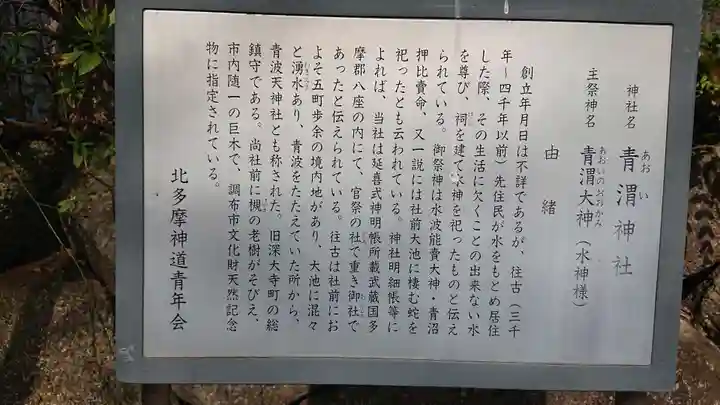 神社名 青渭神社
あおい
主祭神名 青渭大神(水神様)
あおいのおおかみ
由緒
創立年月日は不詳であるが、往古(三千
年-四千年以前)先住民が水をもとめ居住
した際、その生活に欠くことの出来ない水
を尊び、祠を建て水神を祀ったものと伝え
られている。御祭神は水波能賣大神・青沼
押比賣命、又一説には社前大池に棲む蛇を
祀ったとも云われている。神社明細帳等に
よれば、当社は延喜式神明帳所載武蔵国多
摩郡八座の内にて、官祭の社で重き御社で
あったと伝えられている。往古は社前にお
よそ五町歩余の境内地があり、大池に混々
と湧水あり、青波をたたえていた所から、
青波天神社とも称された。旧深大寺町の総
鎮守である。尚社前に槻の老樹がそびえ、
市内随一の巨木で、調布市文化財天然記念
物に指定されている。
北多摩神道青年会